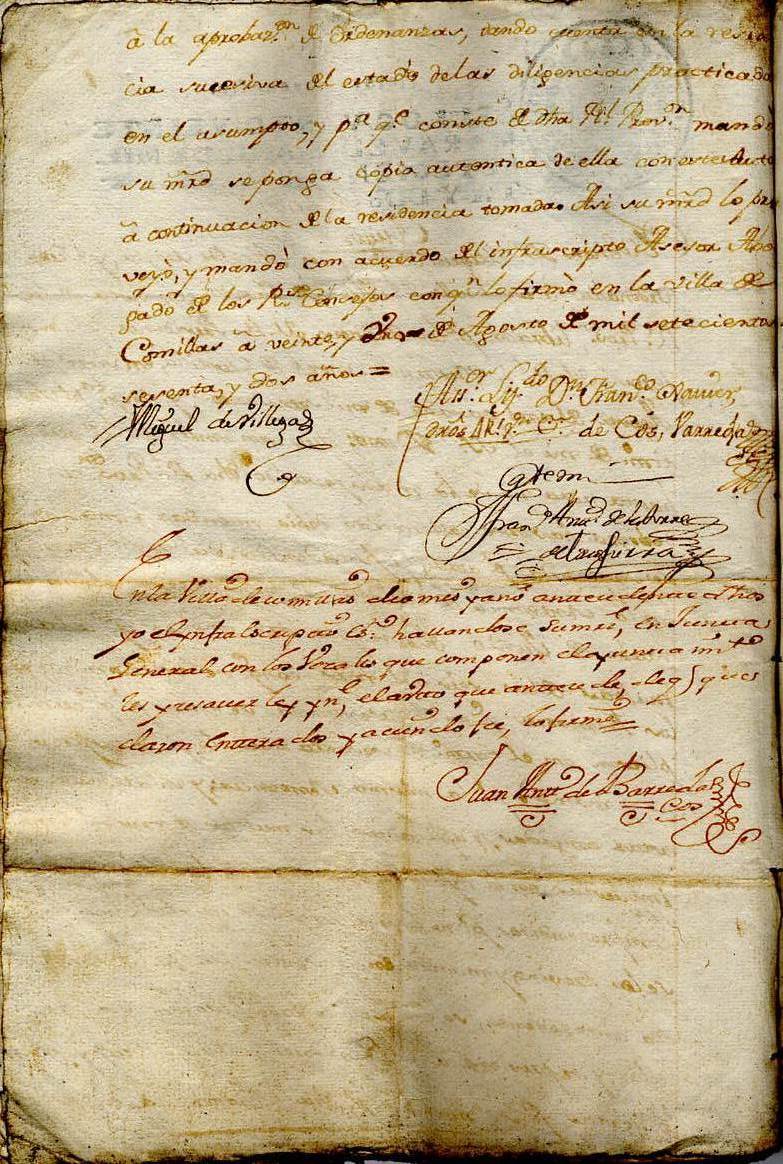 à la aprobaz.on de Ordenanzas, dando cuenta en la residen
cia sucesiva del estado delas diligencias practicada
en el asumpto, y p.a q.e conste de dha Rl. Prov.on mandò
su mrd se ponga copia autentica de ella con este Auto
à continuacion de la residencia tomada. Asi su mrd lo pro
veyò, y mandò con acuerdo del infrascripto Asesor Abo
gado de los R.s Consejos con q.n lo firmò en la villa de
Comillas a veinte, y de Agosto de mil setecientos
sesenta, y dos años =
Miguel de Villegas
Liz.do Dn. Fran.co Xavier
de Cos, Varreda
Ante mi
Fran.co Ant.o de la Torre
En la Villa de comillas dho mes y año
yo el ynfraescripto es.no hallandose su mrd, en Junta
General con los Vocales que componen el ayuntam.to
ley y el auto que antecede, que
daron enterados y de ello doi fee, lo firme
Juan Ant.o de Barreda
Cos